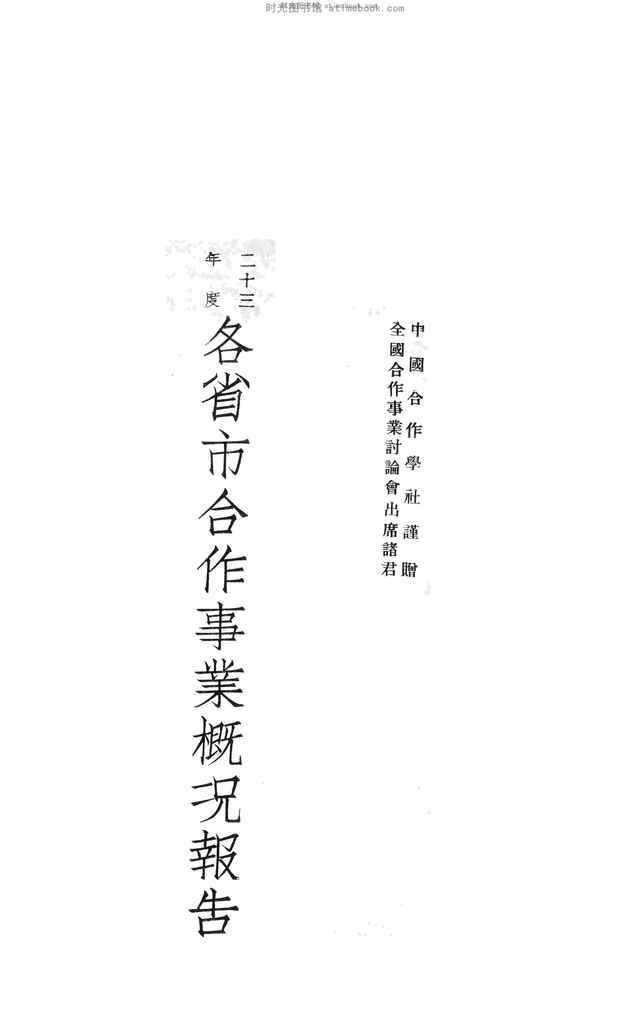 时光图书馆 atimebook.com
中國合作學社謹贈
全國合作事業討論會出席諸君
二十三
年度
各省市合作事業概況報告